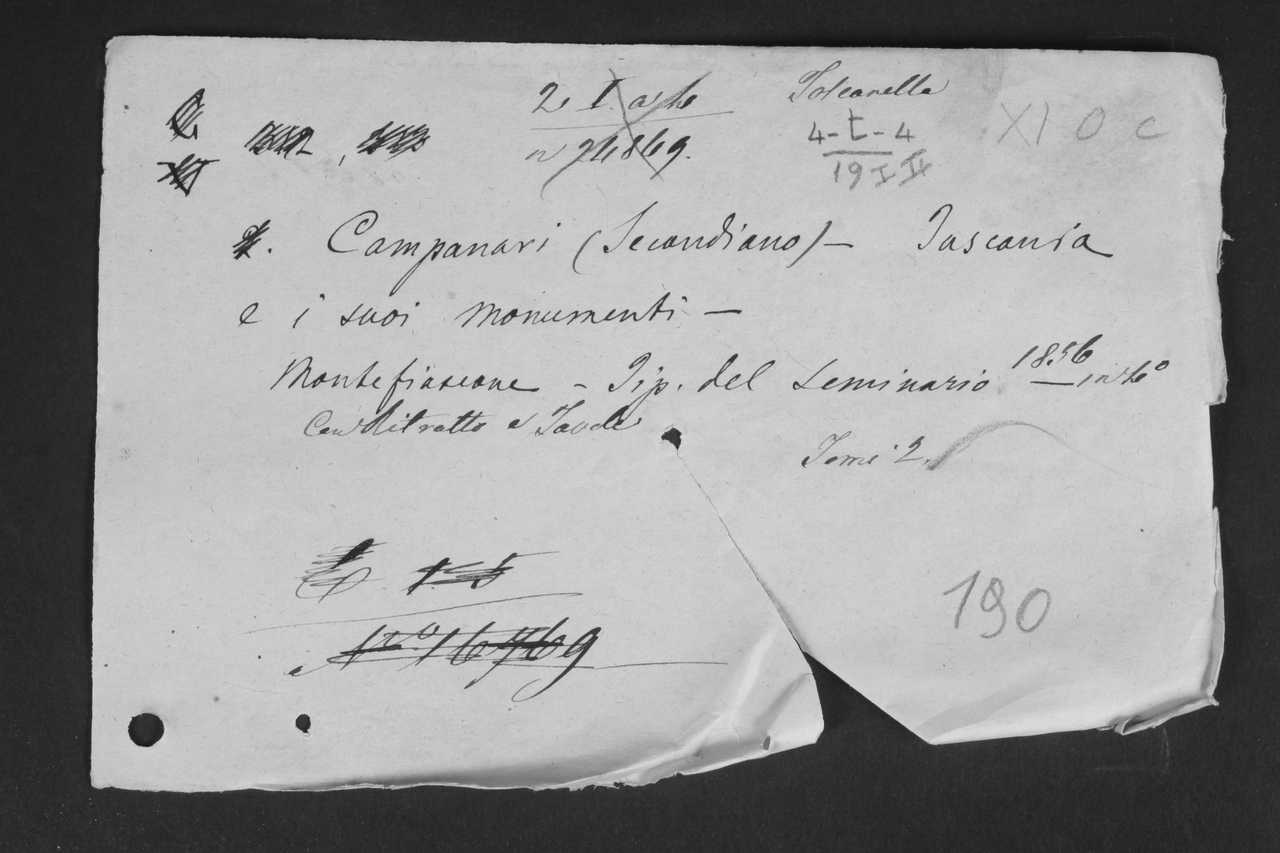 Toscanella
4-t-4
19 I II
XI O C
Campanari (Secondiano) - Tuscania
e i suoi monumenti -
Montefiascone - Tip. del Seminario 1856 in 8º
Con Ritratto e Tavole
Tomi 2.
190